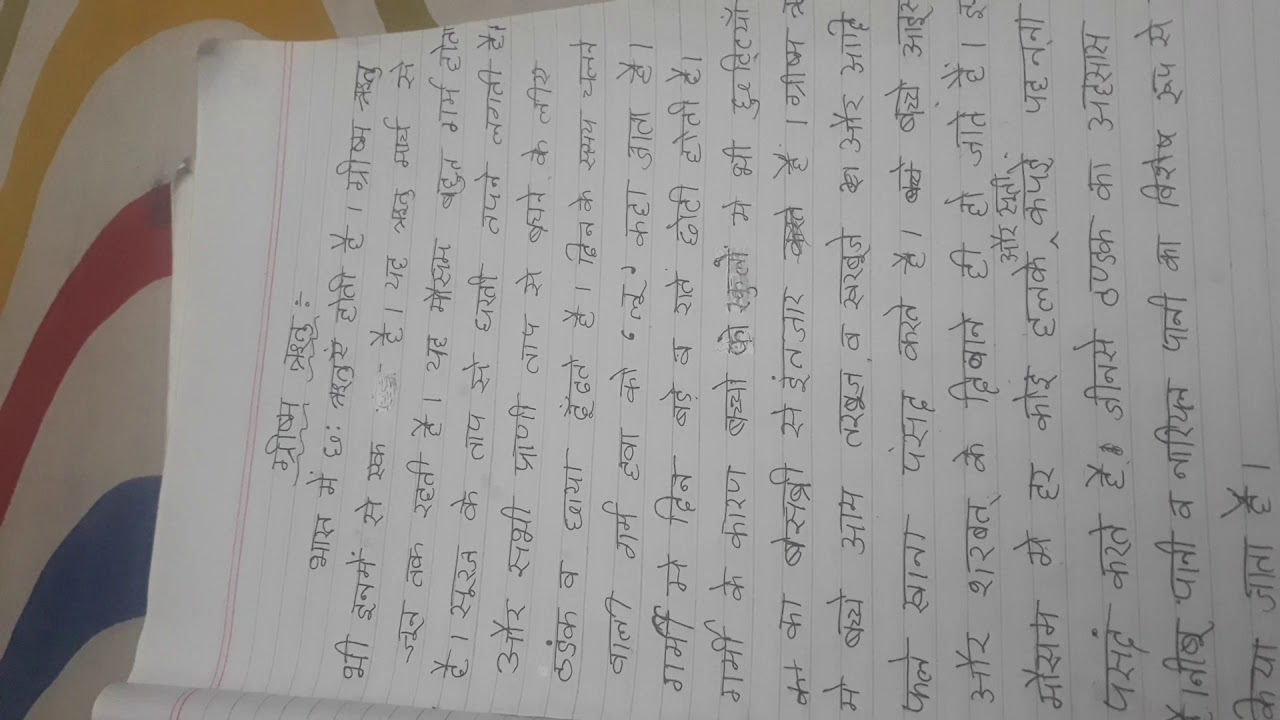 ग्रीष्म ऋतु :
भारत में छ: ऋतुएं होती है। ग्रीष्म ऋतु
भी इनमें से एक है। यह ऋतु मार्च से
जून तक रहती है। यह मौसम बहुत गर्म होता
है। सूरज के ताप से धरती तपने लगती है।
और सभी प्राणी ताप से बचने के लीय
ठडंक व छाया ढूंढते है। दिन के समय चलने
वाली गर्म हवा को 'लू' कहा जाता है।
गर्मी मे दिन बड़े व राते छोटी होती है।
गर्मी के कारण बच्चो की स्कुलो मे भी छुट्टियों
का बेसब्री से इंतजार करते है। ग्रीष्म ऋ
मे बच्चे आम तरबूज व खरबूजे का और आदि
फल खाना पंसद करते है। बच्चे आइस
और शरबत् के दिवाने ही हो जाते हैं। इ
मौसम मे हर कोई हलके और सूती कपड़े पहनना
पसंद करते है। जीनसे ठण्डक का अहसास
है। नीबू पानी व नारियल पानी का विशेष रूप से
किया जाता है।